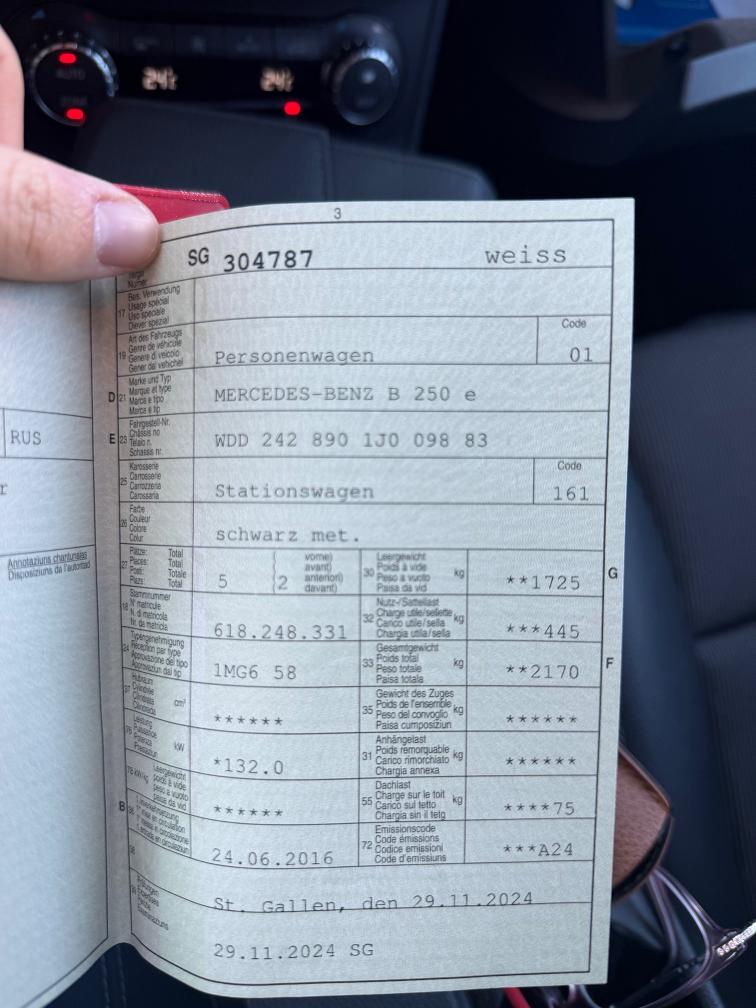 AUTO
24
24
3
SG 304787 weiss
Nummer
17 Bes. Verwendung
Usage spécial
Uso speciale
Diever spezial
Code
19 Art des Fahrzeugs
Genre de véhicule
Genere di veicolo
Gener dal vehichel
Personenwagen 01
D 21 Marke und Typ
Marque et type
Marca e tipo
Marca e tip
MERCEDES-BENZ B 250 e
E 23 Fahrgestell-Nr.
Châssis no
Telaio n.
Schassis nr.
WDD 242 890 1J0 098 83
RUS
25 Karosserie
Carrosserie
Carrozzeria
Carossaria
Code
Stationswagen 161
26 Farbe
Couleur
Colore
Colur
schwarz met.
Annotaziuns chantunalas
Disposiziuns da l'autoritad
27 Plätze: Total
Places: Total
Posti: Totale
Plazs: Total
5 2 vorne)
avant)
anteriori)
davant)
30 Leergewicht
Poids à vide
Peso a vuoto
Paisa da vid
kg **1725 G
18 Stammnummer
N° matricule
N. di matricola
Nr. da matricla
618.248.331
32 Nutz-/Sattellast
Charge utile/sellette
Carico utile/sella
Chargia utila/sella
kg ***445
24 Typengenehmigung
Réception par type
Approvazione del tipo
Approvaziun dal tip
1MG6 58
33 Gesamtgewicht
Poids total
Peso totale
Paisa totala
kg **2170 F
37 Hubraum
Cylindrée
Cilindrata
Cilindrada
cm³ ******
35 Gewicht des Zuges
Poids de l'ensemble
Peso del convoglio
Paisa cumposiziun
kg ******
76 Leistung
Puissance
Potenza
Prestaziun
kW *132.0
31 Anhängelast
Poids remorquable
Carico rimorchiato
Chargia annexa
kg ******
78 kW/kg Leergewicht
poids à vide
peso a vuoto
paisa da vid
******
55 Dachlast
Charge sur le toit
Carico sul tetto
Chargia sin il tetg
kg ****75
B 36
24.06.2016
72 Emissionscode
Code émissions
Codice emissioni
Code d'emissiuns
***A24
38
St. Gallen, den 29.11.2024
39 Prüfungen
Expertises
29.11.2024 SG